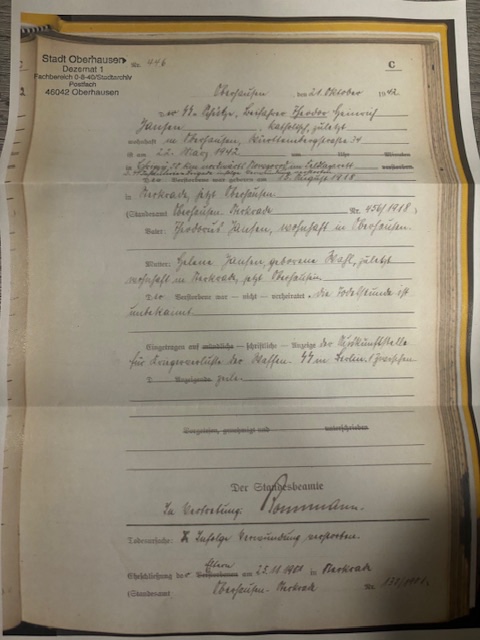 Stadt Oberhausen
Dezernat 1
Fachbereich 0-8-40/Stadtarchiv
Postfach
46042 Oberhausen
Nr. 446
C
Oberhausen, den 21. Oktober 1942
Der SS Schütze, Theodor Heinrich
Jansen, katholisch, zuletzt
wohnhaft in Oberhausen, Württembergstraße 34
ist am 22. März 1942 um Uhr Minuten
in 30 km Feldlazarett verstorben.
Der Verstorbene war geboren am 18. August 1918
in Sterkrade, jetzt Oberhausen
(Standesamt Oberhausen-Sterkrade Nr. 456/1918)
Vater: Theodorus Jansen, wohnhaft in Oberhausen.
Mutter: Helene Jansen, geborene zuletzt
wohnhaft in Sterkrade, jetzt Oberhausen
Der Verstorbene war — nicht — verheiratet. Die Todesstunde ist
unbekannt
Eingetragen auf mündliche — schriftliche — Anzeige der Auskunftstelle
für Kriegerverluste der Waffen-SS in Berlin.
Anzeigende Zeilen
Vorgelesen, genehmigt und unterschrieben
Der Standesbeamte
In Vertretung:
Todesursache: Infolge Verwundung verstorben.
Eheschließung der Eltern Verstorbenen am 23.11.1901 in Sterkrade
(Standesamt Oberhausen-Sterkrade Nr.